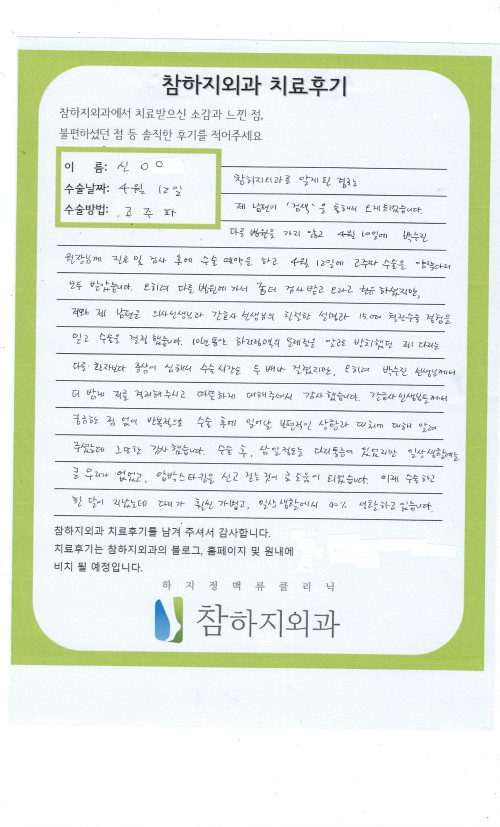 참하지외과 치료후기
참하지외과에서 치료받으신 소감과 느낀 점,
불편하셨던 점 등 솔직한 후기를 적어주세요
이 름: 신 ○○
수술날짜: 4월 12일
수술방법: 고주파
참하지외과로 알게된 경로는
제 남편이 '검색'을 통해서 오게 되었습니다.
다른 병원을 가지 않고 4월 10일에 박수진
원장님께 진료 및 검사 후에 수술 예약을 하고 4월 12일에 고주파 수술을 양쪽다리
모두 받았습니다. 오히려 다른 병원에 가서 좀더 검사받고 오라고 하셨지만,
저와 제 남편은 의사선생님과 간호사 선생님의 친절한 설명과 15,000 혈관수술 경험을
믿고 수술을 결정했습니다. 10년동안 하지정맥의 문제점을 알고도 방치했던 제 다리는
다른 환자보다 증상이 심해서 수술시간도 두 배나 걸렸지만, 오히려 박수진 선생님께서
더 밝게 저를 격려해주시고 따뜻하게 대해주셔서 감사했습니다. 간호사 선생님들께서
궁금한 점 없이 반복적으로 수술 후에 일어날 보편적인 상황과 대처에 대해 알려
주셨는데 그 또한 감사했습니다. 수술 후, 삼일정도는 다리통증이 있었지만 일상생활에는
큰 무리가 없었고, 압박스타킹을 신고 걷는 것이 큰 도움이 되었습니다. 이제 수술하고
한 달이 지났는데 다리가 훨씬 가볍고, 일상생활에서 90% 생활하고 있습니다.
참하지외과 치료후기를 남겨 주셔서 감사합니다.
치료후기는 참하지외과의 블로그, 홈페이지 및 원내에
비치 될 예정입니다.
하지정맥류클리닉
참하지외과